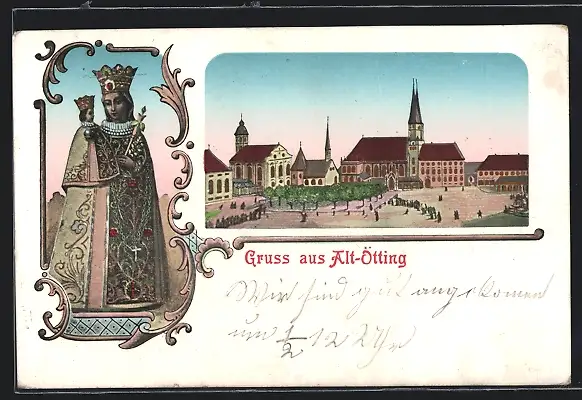 Gruss aus Alt-Ötting
Wir sind gut angekomen
um ½ 12 Uhr